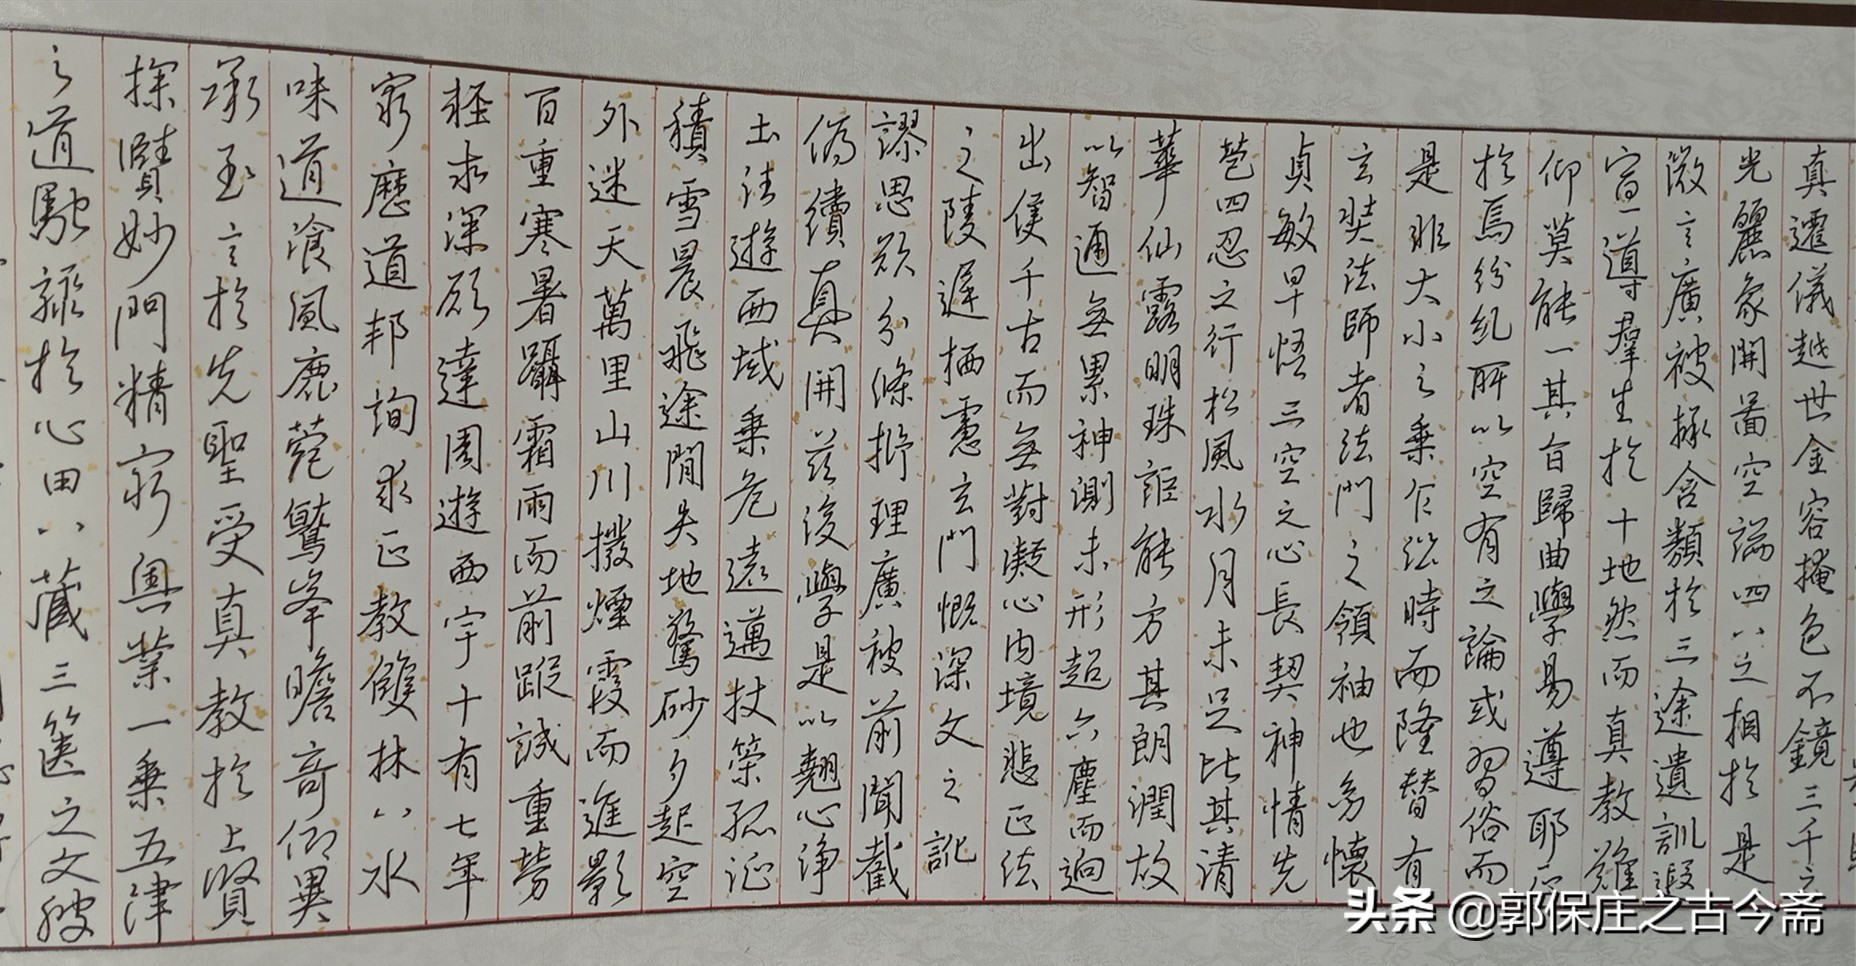 真遷儀越世金容掩色不鏡三千之
光麗象開圖空端四八之相於是
微言廣被拯含類於三途遺訓遐
宣導羣生於十地然而真教難
仰莫能一其旨歸曲學易遵耶正
於焉紛糾所以空有之論或習俗而
是非大小之乘乍沿時而隆替有
玄奘法師者法門之領袖也幼懷
貞敏早悟三空之心長契神情先
苞四忍之行松風水月未足比其清
華仙露明珠詎能方其朗潤故
以智通無累神測未形超六塵而迥
出隻千古而無對凝心內境悲正法
之陵遲栖慮玄門慨深文之訛
謬思欲分條析理廣被前聞截
偽續真開茲後學是以翹心淨
土法遊西域乘危遠邁杖策孤征
積雪晨飛途閒失地驚砂夕起空
外迷天萬里山川撥煙霞而進影
百重寒暑躡霜雨而前蹤誠重勞
輕求深願達周遊西宇十有七年
窮歷道邦詢求正教雙林八水
味道飡風鹿菀鷲峯瞻奇仰異
承至言於先聖受真教於上賢
探賾妙門精窮奧業一乘五律
之道馳驟於心田八藏三篋之文波
头条 @郭保庄之古今斋